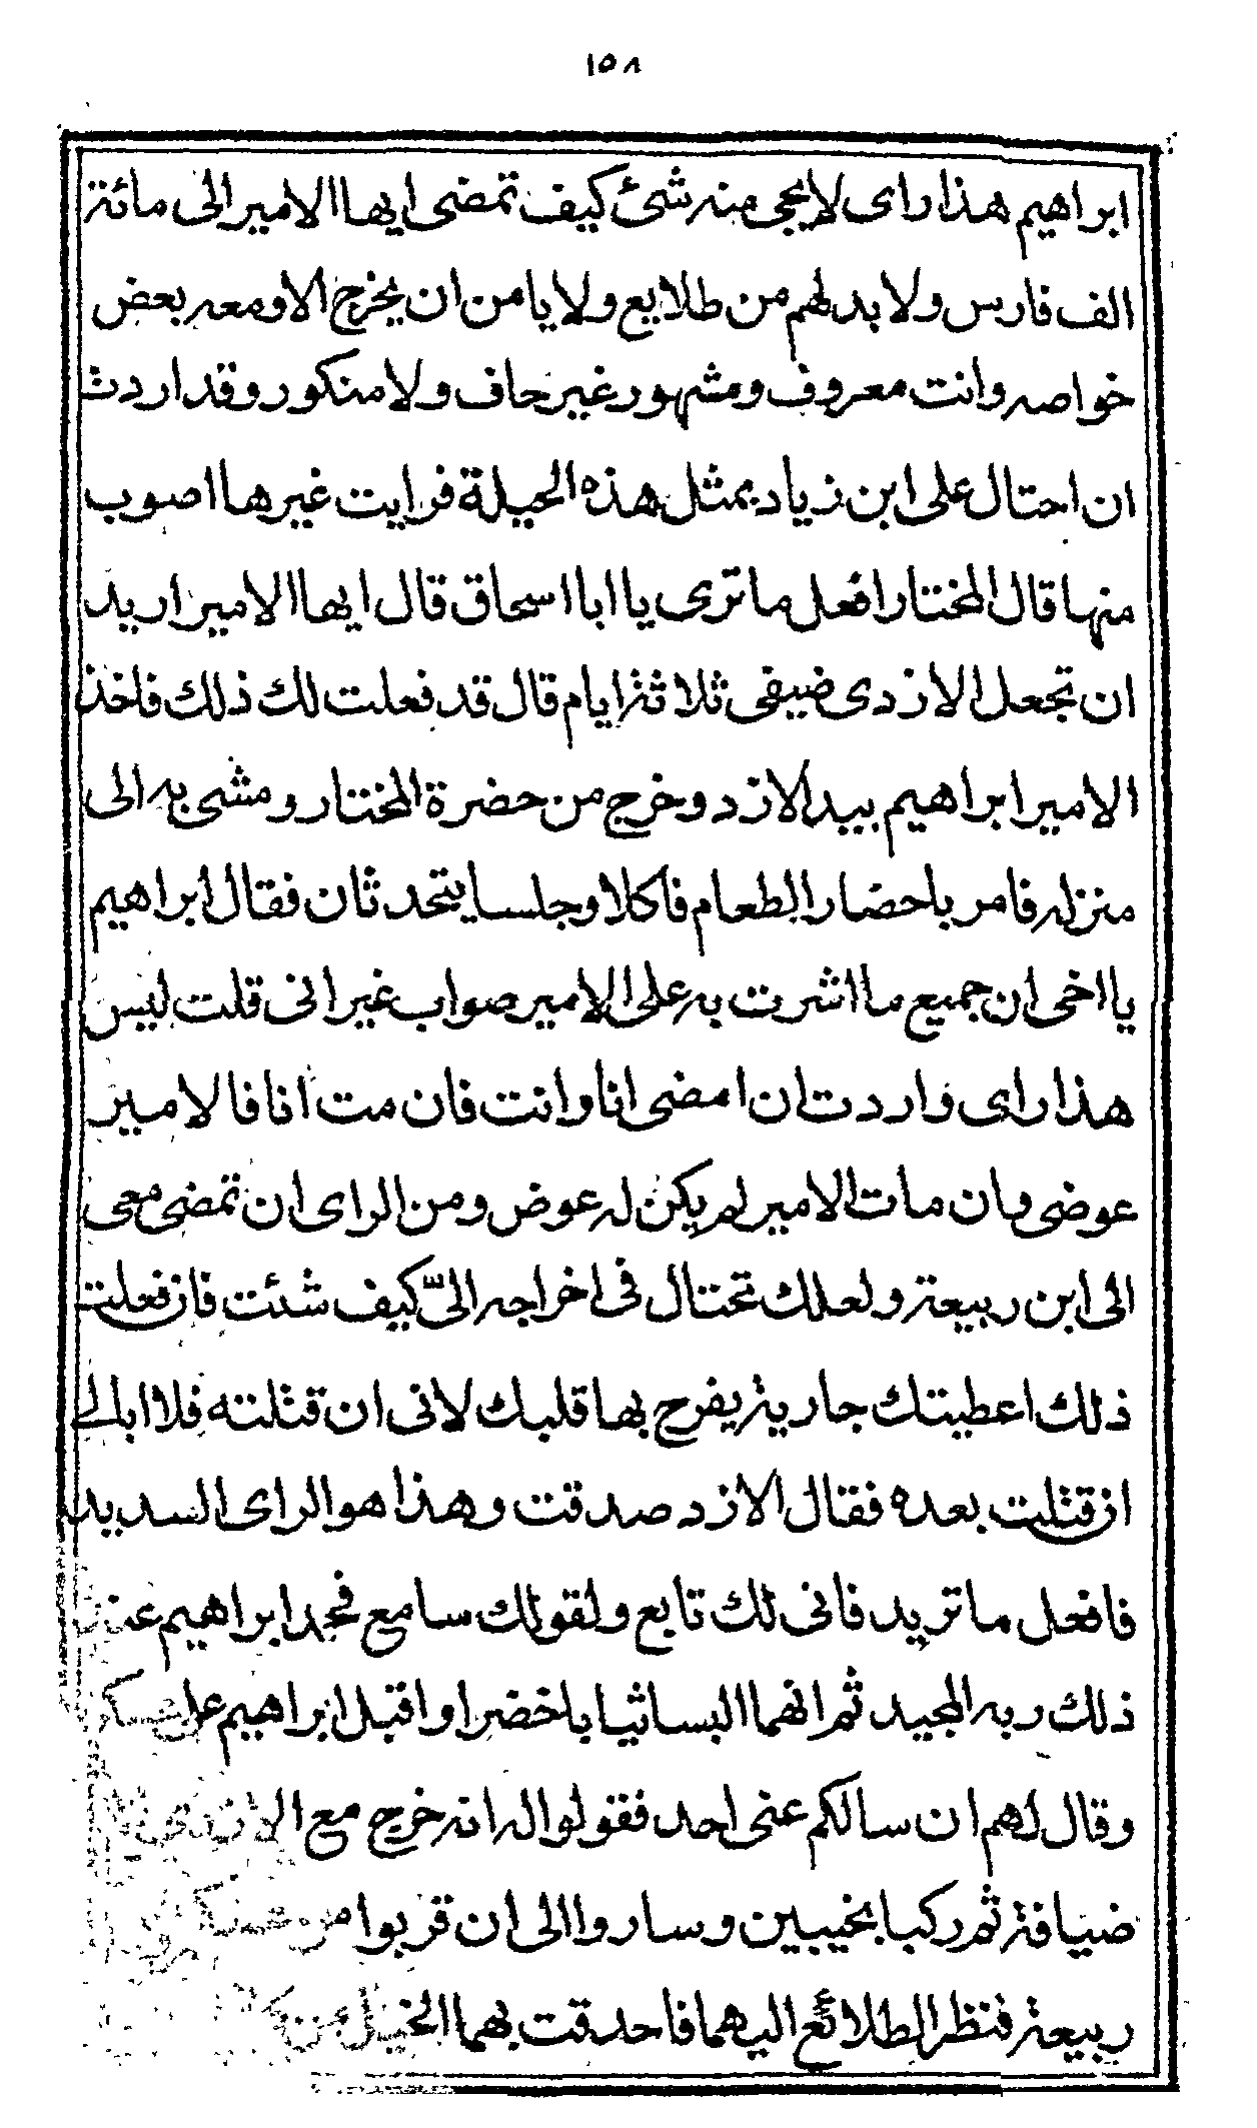 ١٥٨
ابراهيم هذا راى لا يجى منه شئ كيف تمضى ايها الامير الى مائة
الف فارس ولا بد لهم من طلايع ولا يامن ان يخرج الا ومعه بعض
خواصه وانت معروف ومشهور غير خاف ولا منكور وقد اردت
ان احتال على ابن زياد بمثل هذه الحيلة فرايت غيرها اصوب
منها قال المختار افعل ما ترى يا ابا اسحاق قال ايها الامير اريد
ان تجعل الازدى ضيفى ثلاثة ايام قال قد فعلت لك ذلك فاخذ
الامير ابراهيم بيد الازد وخرج من حضرة المختار ومشى به الى
منزله فامر باحضار الطعام فاكلا وجلسا يتحدثان فقال ابراهيم
يا اخى ان جميع ما اشرت به على الامير صواب غير انى قلت ليس
هذا راى واردت ان امضى انا وانت فان مت انا فالامير
عوضى وان مات الامير لم يكن له عوض ومن الراى ان تمضى معى
الى ابن ربيعة ولعلك تحتال فى اخراجه الىّ كيف شئت فان فعلت
ذلك اعطيتك جارية يفرح بها قلبك لانى ان قتلته فلا ابالى
ان قتلت بعده فقال الازد صدقت وهذا هو الراى السديد
فافعل ما تريد فانى لك تابع ولقولك سامع فحمد ابراهيم عند
ذلك ربه المجيد ثم انهما البسا ثيابا خضرا واقبل ابراهيم على عسكره
وقال لهم ان سالكم عنى احد فقولوا له انه خرج مع الازدى
ضيافة ثم ركبا بخيبين وساروا الى ان قربوا من عسكر
ربيعة فنظر الطلائع اليهما فاحدقت بهما الخيل من